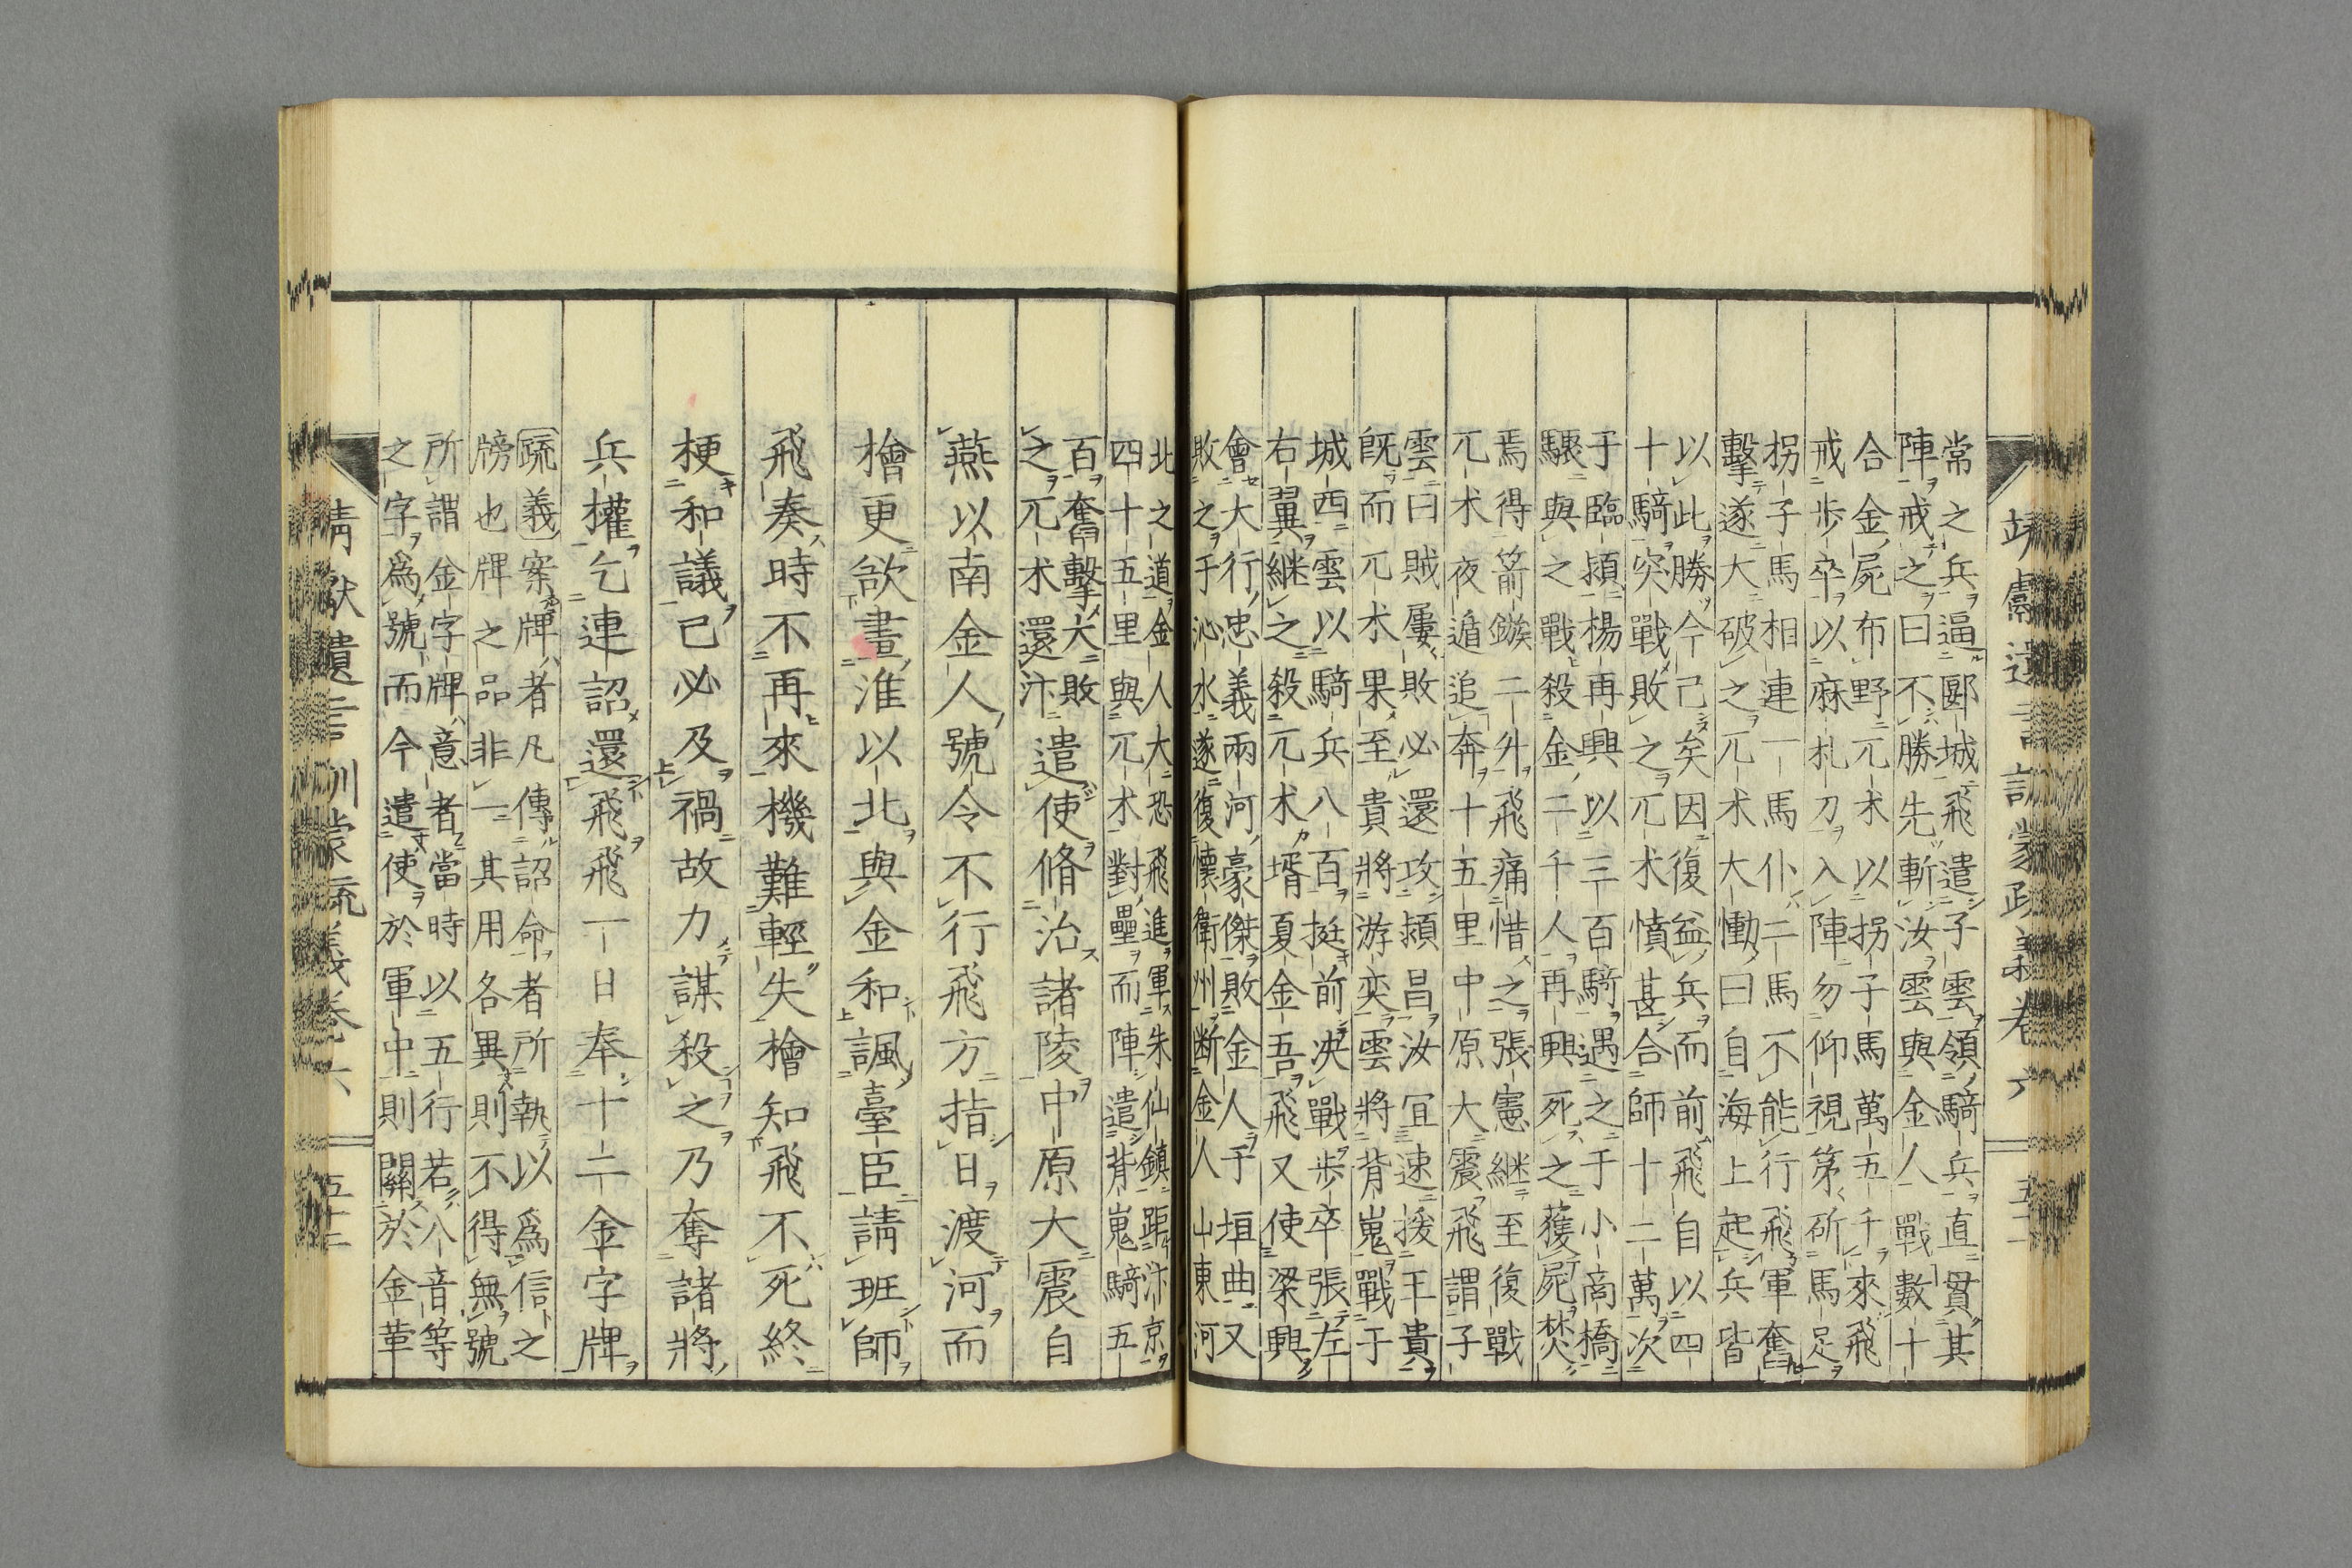 靖獻遺言訓蒙疏義卷六
五十二
常之兵逼郾城飛遣子雲領騎兵直貫其
陣戒之曰不勝先斬汝雲與金人戰數十
合金屍布野兀朮以拐子馬萬五千來飛
戒歩卒以麻札刀入陣勿仰視第斫馬足
拐子馬相連一馬仆二馬不能行飛軍奮
擊遂大破之兀朮大慟曰自海上起兵皆
以此勝今已矣因復益兵而前飛自以四
十騎突戰敗之兀朮憤甚合師十二萬次
于臨潁楊再興以三百騎遇之于小商橋
驟與之戰殺金二千人再興死之獲屍焚
焉得箭鏃二升飛痛惜之張憲継至復戰
兀朮夜遁追奔十五里中原大震飛謂子
雲曰賊屢敗必還攻潁昌汝宜速援王貴
既而兀朮果至貴將游奕雲將背嵬戰于
城西雲以騎兵八百挺前决戰歩卒張左
右翼継之殺兀朮壻夏金吾飛又使梁興
會大行忠義兩河豪傑敗金人于垣曲又
敗之于沁水遂復懷衛州断金人山東河
北之道金人大恐飛進軍朱仙鎮距汴京
四十五里與兀朮對壘而陣遣背嵬騎五
百奮擊大敗
之兀朮還汴
遣使脩治諸陵中原大震自
燕以南金人號令不行飛方指日渡河而
檜更欲畫淮以北與金和諷臺臣請班師
飛奏時不再來機難輕失檜知飛不死終
梗和議己必及禍故力謀殺之乃奪諸將
兵權乞連詔還飛飛一日奉十二金字牌
疏義案牌者凡傳詔命者所執以爲信之
牓也牌之品非一其用各異則不得無號
所謂金字牌意者當時以五行若八音等
之字爲號而今遣使於軍中則關於金革
靖獻遺言訓蒙疏義卷六
五十三